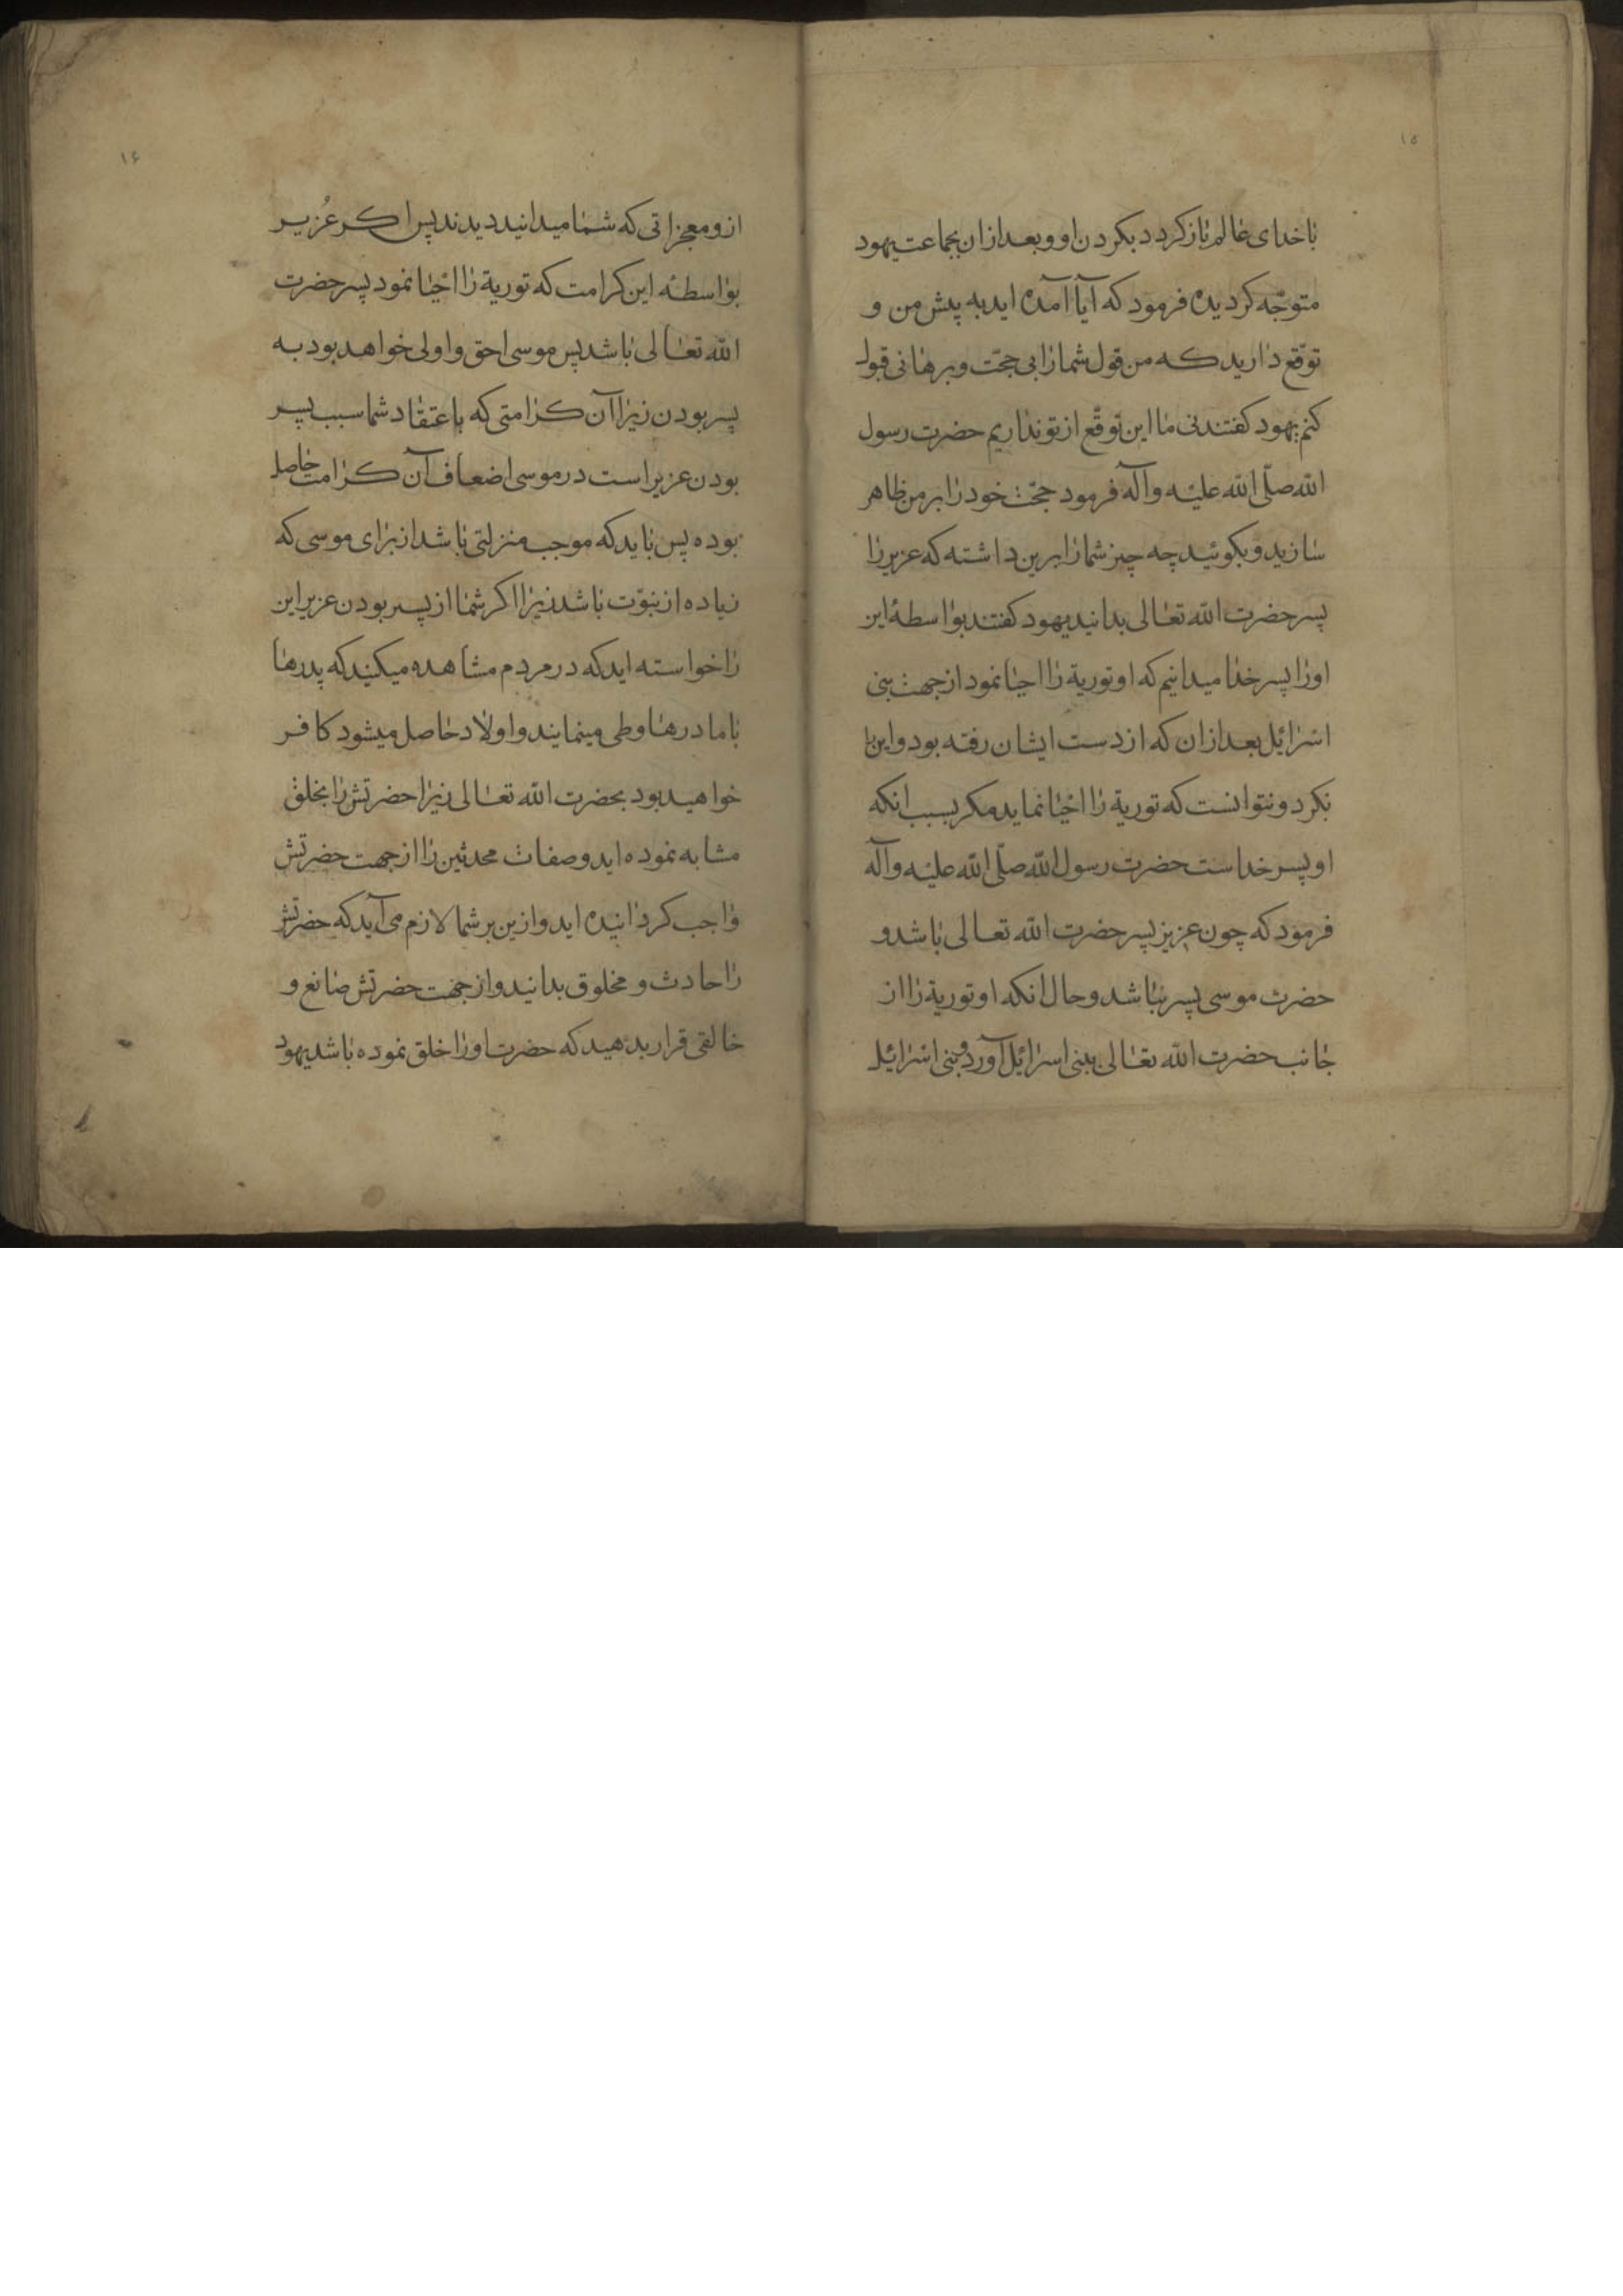 ۱۵
با خدای عالم باز کردد بکردن او و بعد ازان بجماعت یهود
متوجّه کردیده فرمود که آیا آمده اید به پیش من و
توقّع دارید که من قول شما را بی حجّت و برهانی قبول
کنم یهود کفتند نی ما این توقّع از تو نداریم حضرت رسول
الله صلّی الله علیه و آله فرمود حجّت خود را بر من ظاهر
سازید و بکوئید چه چیز شما را برین داشته که عزیر را
پسر حضرت الله تعالی بدانید یهود کفتند بواسطهٔ این
او را پسر خدا میدانیم که او توریة را احیا نمود از جهت بنی
اسرائیل بعد ازان که از دست ایشان رفته بود و این را
نکرد و نتوانست که توریة را احیا نماید مکر بسبب انکه
او پسر خداست حضرت رسول الله صلّی الله علیه و آله
فرمود که چون عزیر پسر حضرت الله تعالی باشد و
حضرت موسی پسر نباشد و حال انکه او توریة را از
جانب حضرت الله تعالی ببنی اسرائیل آورد و بنی اسرائیل
۱۶
ازو معجزاتی که شما میدانید دیدند پس اکر عُزیر
بواسطهٔ این کرامت که توریة را احیا نمود پسر حضرت
الله تعالی باشد پس موسی احق و اولی خواهد بود به
پسر بودن زیرا آن کرامتی که باعتقاد شما سبب پسر
بودن عزیر است در موسی اضعاف آن کرامت حاصل
بوده پس باید که موجب منزلتی باشد از برای موسی که
زیاده از نبوّت باشد زیرا اکر شما از پسر بودن عزیر این
را خواسته اید که در مردم مشاهده میکنید که پدرها
با مادرها وطی مینمایند و اولاد حاصل میشود کافر
خواهید بود بحضرت الله تعالی زیرا حضرتش را بخلق
مشابه نموده اید و صفات محدثین را از جهت حضرتش
واجب کردانیده اید و ازین بر شما لازم می آید که حضرتش
را حادث و مخلوق بدانید و از جهت حضرتش صانع و
خالقی قرار بدهید که حضرت او را خلق نموده باشد یهود